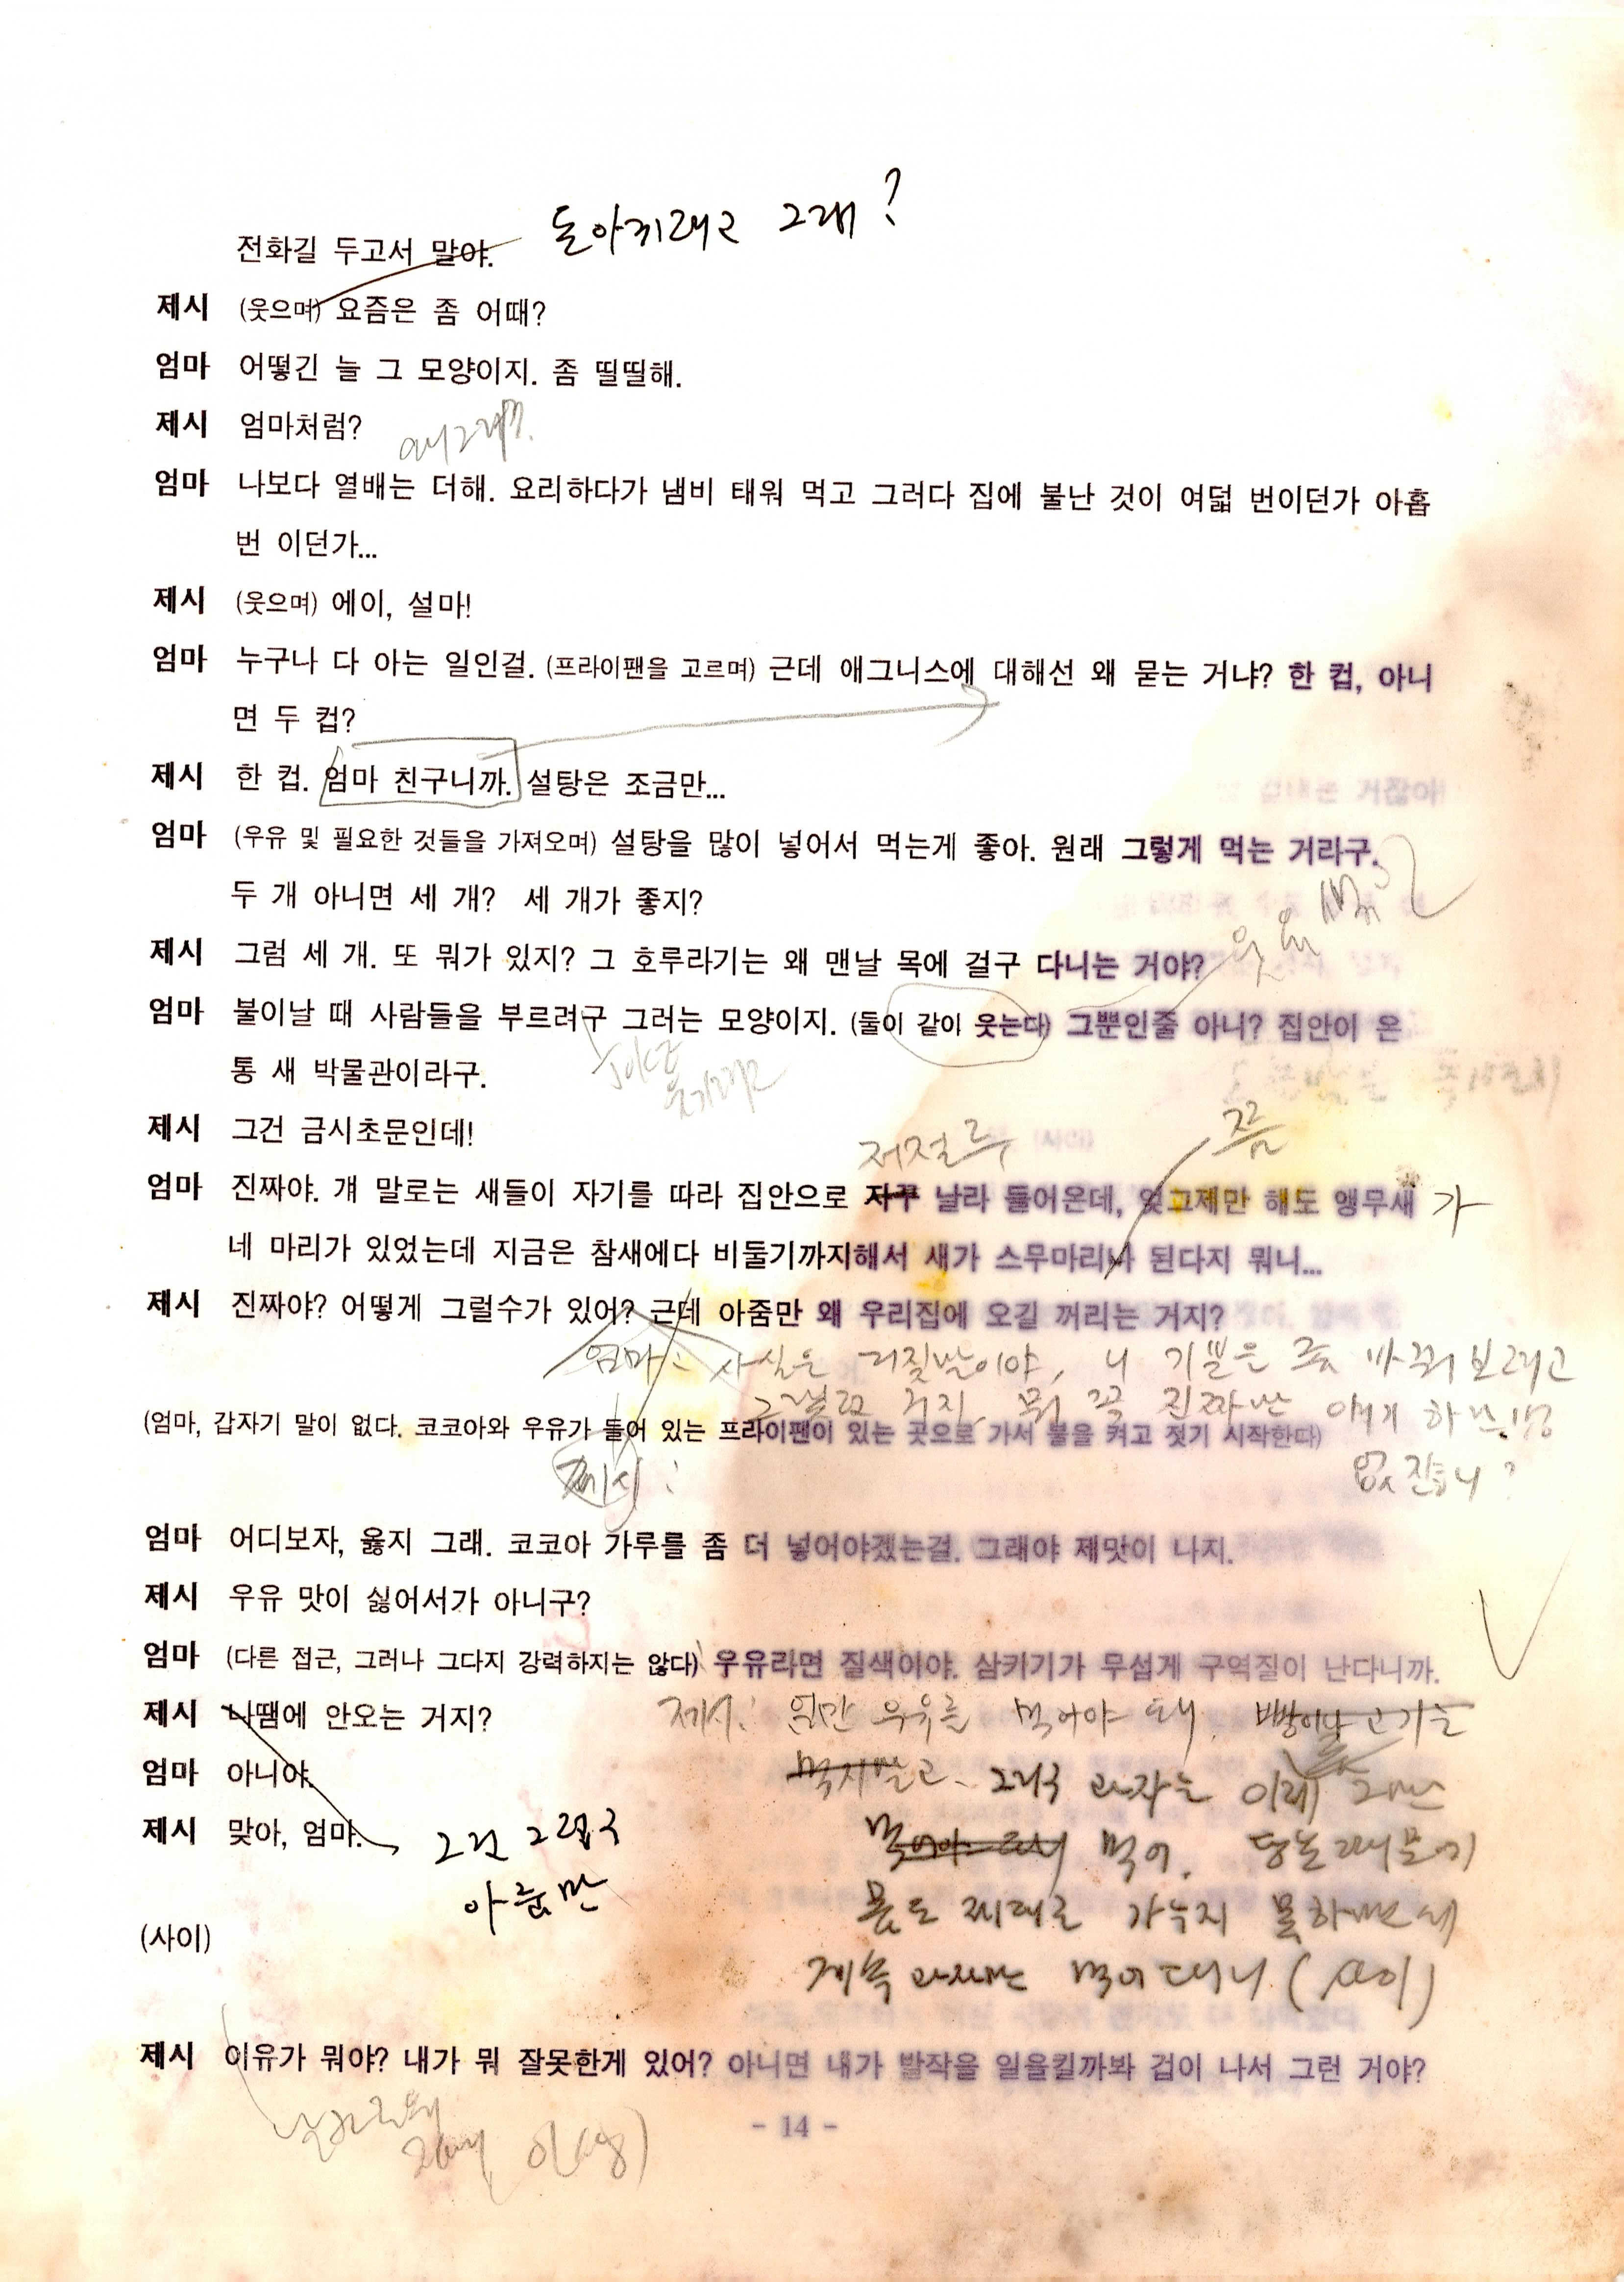 전화길 두고서 말야. 돌아키래고 그래?
제시 (웃으며) 요즘은 좀 어때?
엄마 어떻긴 늘 그 모양이지. 좀 띨띨해.
제시 엄마처럼?
엄마 나보다 열배는 더해. 요리하다가 냄비 태워 먹고 그러다 집에 불난 것이 여덟 번이던가 아홉
번 이던가...
제시 (웃으며) 에이, 설마!
엄마 누구나 다 아는 일인걸. (프라이팬을 고르며) 근데 애그니스에 대해선 왜 묻는 거냐? 한 컵, 아니
면 두 컵?
제시 한 컵. 엄마 친구니까. 설탕은 조금만...
엄마 (우유 및 필요한 것들을 가져오며) 설탕을 많이 넣어서 먹는게 좋아. 원래 그렇게 먹는 거라구.
두 개 아니면 세 개? 세 개가 좋지?
제시 그럼 세 개. 또 뭐가 있지? 그 호루라기는 왜 맨날 목에 걸구 다니는 거야?
엄마 불이날 때 사람들을 부르려구 그러는 모양이지. (둘이 같이 웃는다) 그뿐인줄 아니? 집안이 온
통 새 박물관이라구.
제시 그건 금시초문인데!
저절루 쯤
엄마 진짜야. 걔 말로는 새들이 자기를 따라 집안으로 자꾸 날라 들어온데, 엊그제만 해도 앵무새 가
네 마리가 있었는데 지금은 참새에다 비둘기까지해서 새가 스무마리나 된다지 뭐니...
제시 진짜야? 어떻게 그럴수가 있어? 근데 아줌만 왜 우리집에 오길 꺼리는 거지?
엄마: 사실은 거짓말이야, 니 기분은 좀 바꿔 보려고
그랬던 거지 뭐 꼭 진짜만 얘기 하
(엄마, 갑자기 말이 없다. 코코아와 우유가 들어 있는 프라이팬이 있는 곳으로 가서 불을 켜고 젓기 시작한다)
없잖니?
제시:
엄마 어디보자, 옳지 그래. 코코아 가루를 좀 더 넣어야겠는걸. 그래야 제맛이 나지.
제시 우유 맛이 싫어서가 아니구?
엄마 (다른 접근, 그러나 그다지 강력하지는 않다) 우유라면 질색이야. 삼키기가 무섭게 구역질이 난다니까.
제시 나땜에 안오는 거지? 제시: 엄만 우유를 먹어야 돼. 빵이나 고기는
엄마 아니야. 먹지말고 그리구 과자는 이래 그만
제시 맞아, 엄마. 그건 그렇구 먹어.
아줌만 몸도 제대로 가누지 못하면서
(사이) 계속 과자만 먹어대니 (사이)
제시 이유가 뭐야? 내가 뭐 잘못한게 있어? 아니면 내가 발작을 일을킬까봐 겁이 나서 그런 거야?
- 14 -